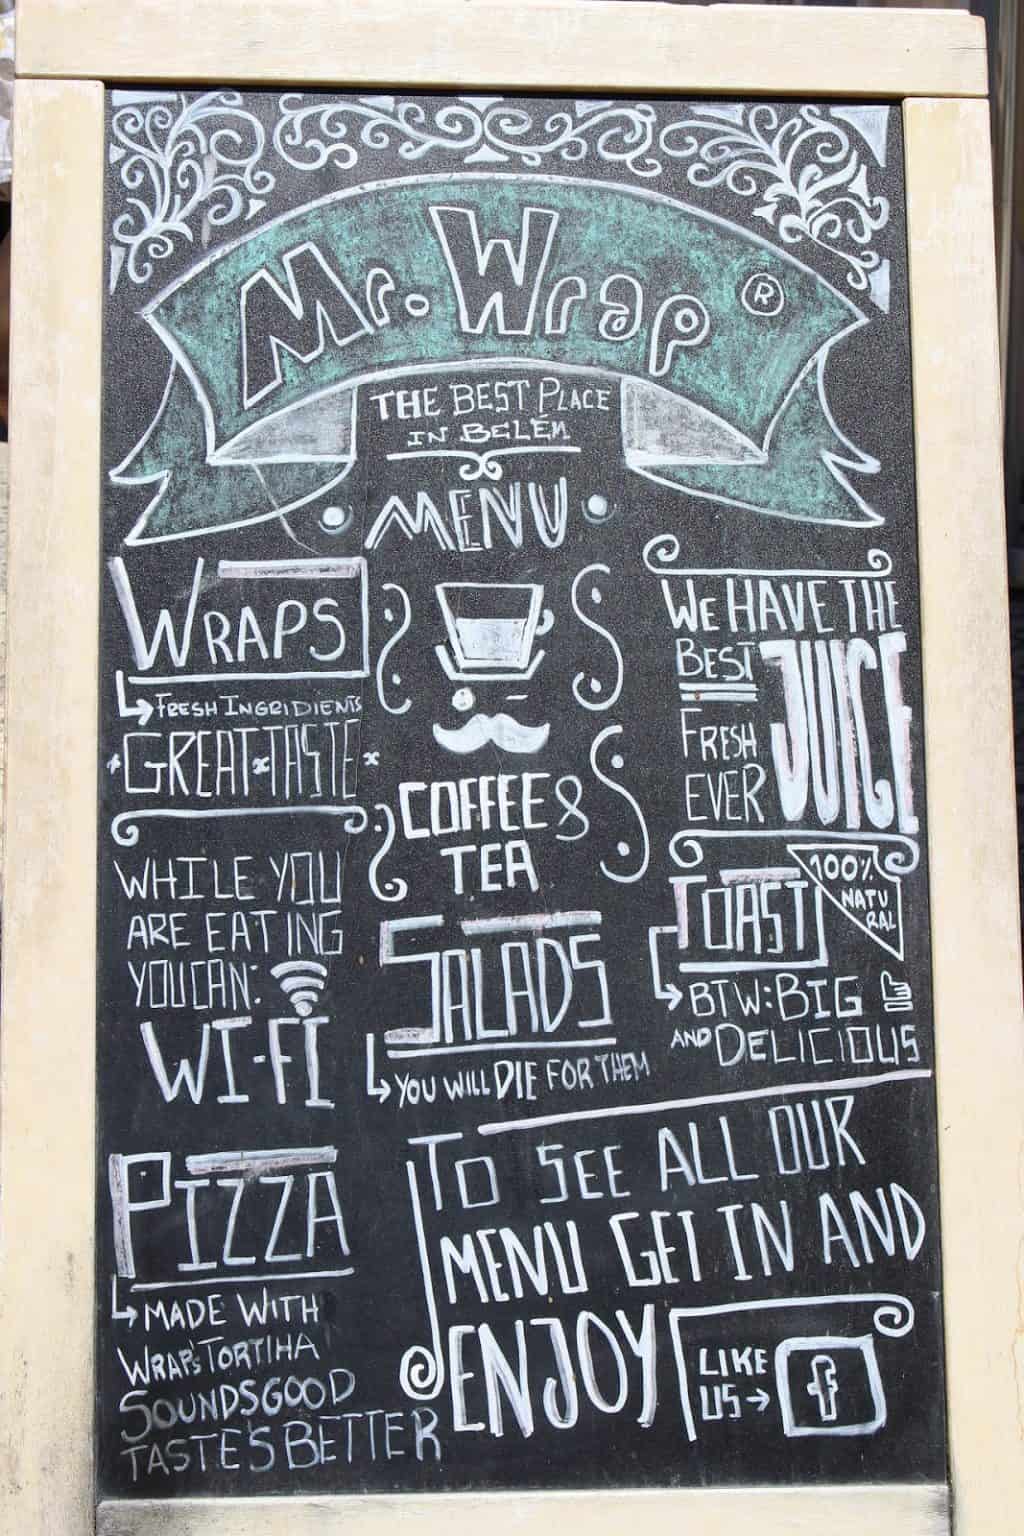 Mr. Wrap ®
THE BEST PLACE
IN BELÉN
MENU
WRAPS
FRESH INGRIDIENTS
GREAT TASTE
WHILE YOU
ARE EATING
YOU CAN:
WI-FI
PIZZA
MADE WITH
WRAP'S TORTIHA
SOUNDS GOOD
TASTE'S BETTER
COFFEE &
TEA
SALADS
YOU WILL DIE FOR THEM
WE HAVE THE
BEST
FRESH
EVER
JUICE
100%
NATU
RAL
TOAST
BTW: BIG
AND DELICIOUS
TO SEE ALL OUR
MENU GET IN AND
ENJOY
LIKE
US
f